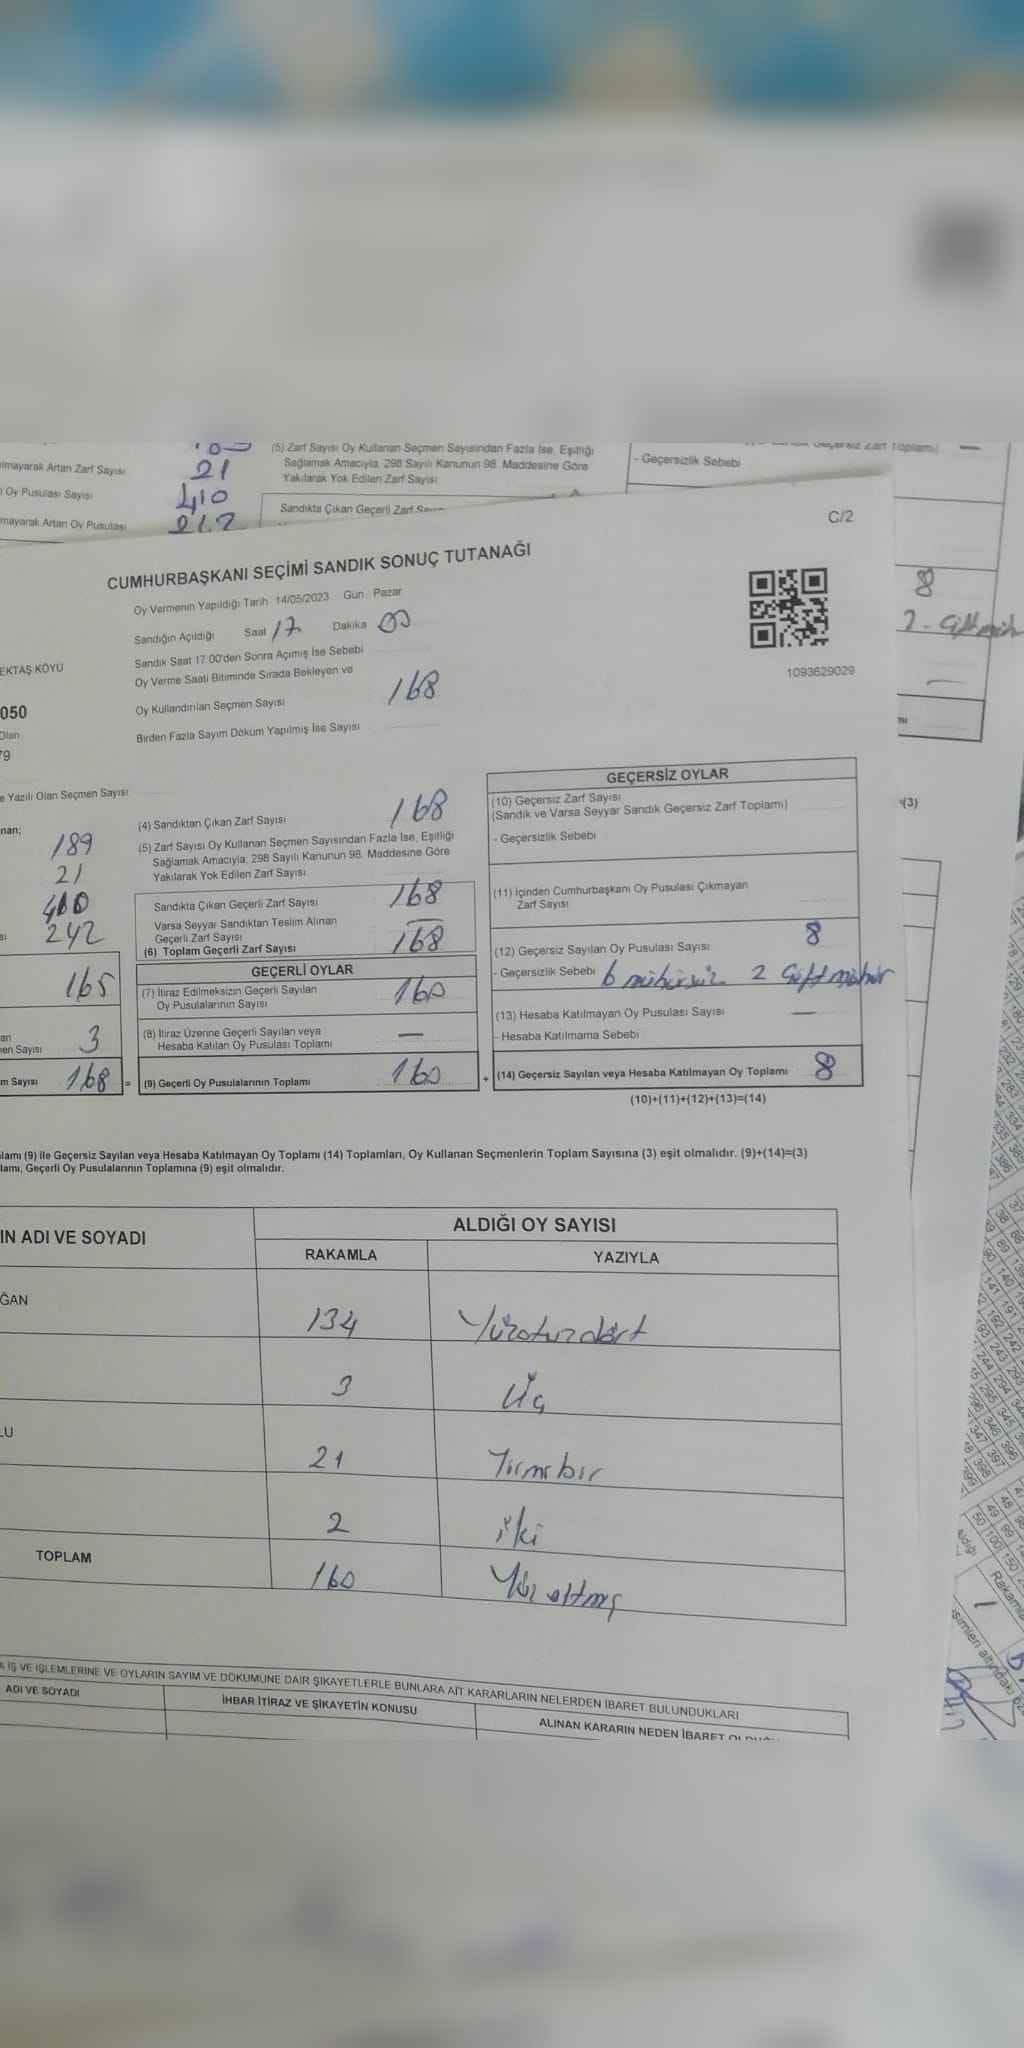 lmayarak Artan Zarf Sayısı 21
Oy Pusulası Sayısı 410
mayarak Artan Oy Pusulası 242
(5) Zarf Sayısı Oy Kullanan Seçmen Sayısından Fazla İse, Eşitliği
Sağlamak Amacıyla, 298 Sayılı Kanunun 98. Maddesine Göre
Yakılarak Yok Edilen Zarf Sayısı
Sandıkta Çıkan Geçerli Zarf
Geçersiz Zarf Toplamı) —
- Geçersizlik Sebebi
8
2 - Çift müh
(3)
C/2
CUMHURBAŞKANI SEÇİMİ SANDIK SONUÇ TUTANAĞI
Oy Vermenin Yapıldığı Tarih 14/05/2023 Gün Pazar
Sandığın Açıldığı Saat 17 Dakika 00
EKTAŞ KÖYÜ
Sandık Saat 17:00'den Sonra Açımış İse Sebebi
Oy Verme Saati Bitiminde Sırada Bekleyen ve
Oy Kullandırılan Seçmen Sayısı 168
1093629029
050
Olan
79
Birden Fazla Sayım Döküm Yapılmış İse Sayısı
e Yazılı Olan Seçmen Sayısı
nan;
189
21
400
242
165
3
en Sayısı
m Sayısı 168 =
(4) Sandıktan Çıkan Zarf Sayısı 168
(5) Zarf Sayısı Oy Kullanan Seçmen Sayısından Fazla İse, Eşitliği
Sağlamak Amacıyla, 298 Sayılı Kanunun 98. Maddesine Göre
Yakılarak Yok Edilen Zarf Sayısı
Sandıkta Çıkan Geçerli Zarf Sayısı 168
Varsa Seyyar Sandıktan Teslim Alınan
Geçerli Zarf Sayısı —
(6) Toplam Geçerli Zarf Sayısı 168
GEÇERLİ OYLAR
(7) İtiraz Edilmeksizin Geçerli Sayılan
Oy Pusulalarının Sayısı 160
(8) İtiraz Üzerine Geçerli Sayılan veya
Hesaba Katılan Oy Pusulası Toplamı —
(9) Geçerli Oy Pusulalarının Toplamı 160 +
GEÇERSİZ OYLAR
(10) Geçersiz Zarf Sayısı
(Sandık ve Varsa Seyyar Sandık Geçersiz Zarf Toplamı)
- Geçersizlik Sebebi
(11) İçinden Cumhurbaşkanı Oy Pusulası Çıkmayan
Zarf Sayısı
(12) Geçersiz Sayılan Oy Pusulası Sayısı 8
- Geçersizlik Sebebi 6 mühürsüz 2 Çift mühür
(13) Hesaba Katılmayan Oy Pusulası Sayısı —
- Hesaba Katılmama Sebebi
(14) Geçersiz Sayılan veya Hesaba Katılmayan Oy Toplamı 8
(10)+(11)+(12)+(13)=(14)
lamı (9) ile Geçersiz Sayılan veya Hesaba Katılmayan Oy Toplamı (14) Toplamları, Oy Kullanan Seçmenlerin Toplam Sayısına (3) eşit olmalıdır. (9)+(14)=(3)
lamı, Geçerli Oy Pusulalarının Toplamına (9) eşit olmalıdır.
IN ADI VE SOYADI ALDIĞI OY SAYISI
RAKAMLA YAZIYLA
ĞAN 134 Yüzotuzdört
3 Üç
LU 21 Yirmibir
2 iki
TOPLAM 160 Yüz altmış
A İŞ VE İŞLEMLERİNE VE OYLARIN SAYIM VE DÖKÜMÜNE DAİR ŞİKAYETLERLE BUNLARA AİT KARARLARIN NELERDEN İBARET BULUNDUKLARI
ADI VE SOYADI İHBAR İTİRAZ VE ŞİKAYETİN KONUSU ALINAN KARARIN NEDEN İBARET OLDUĞU